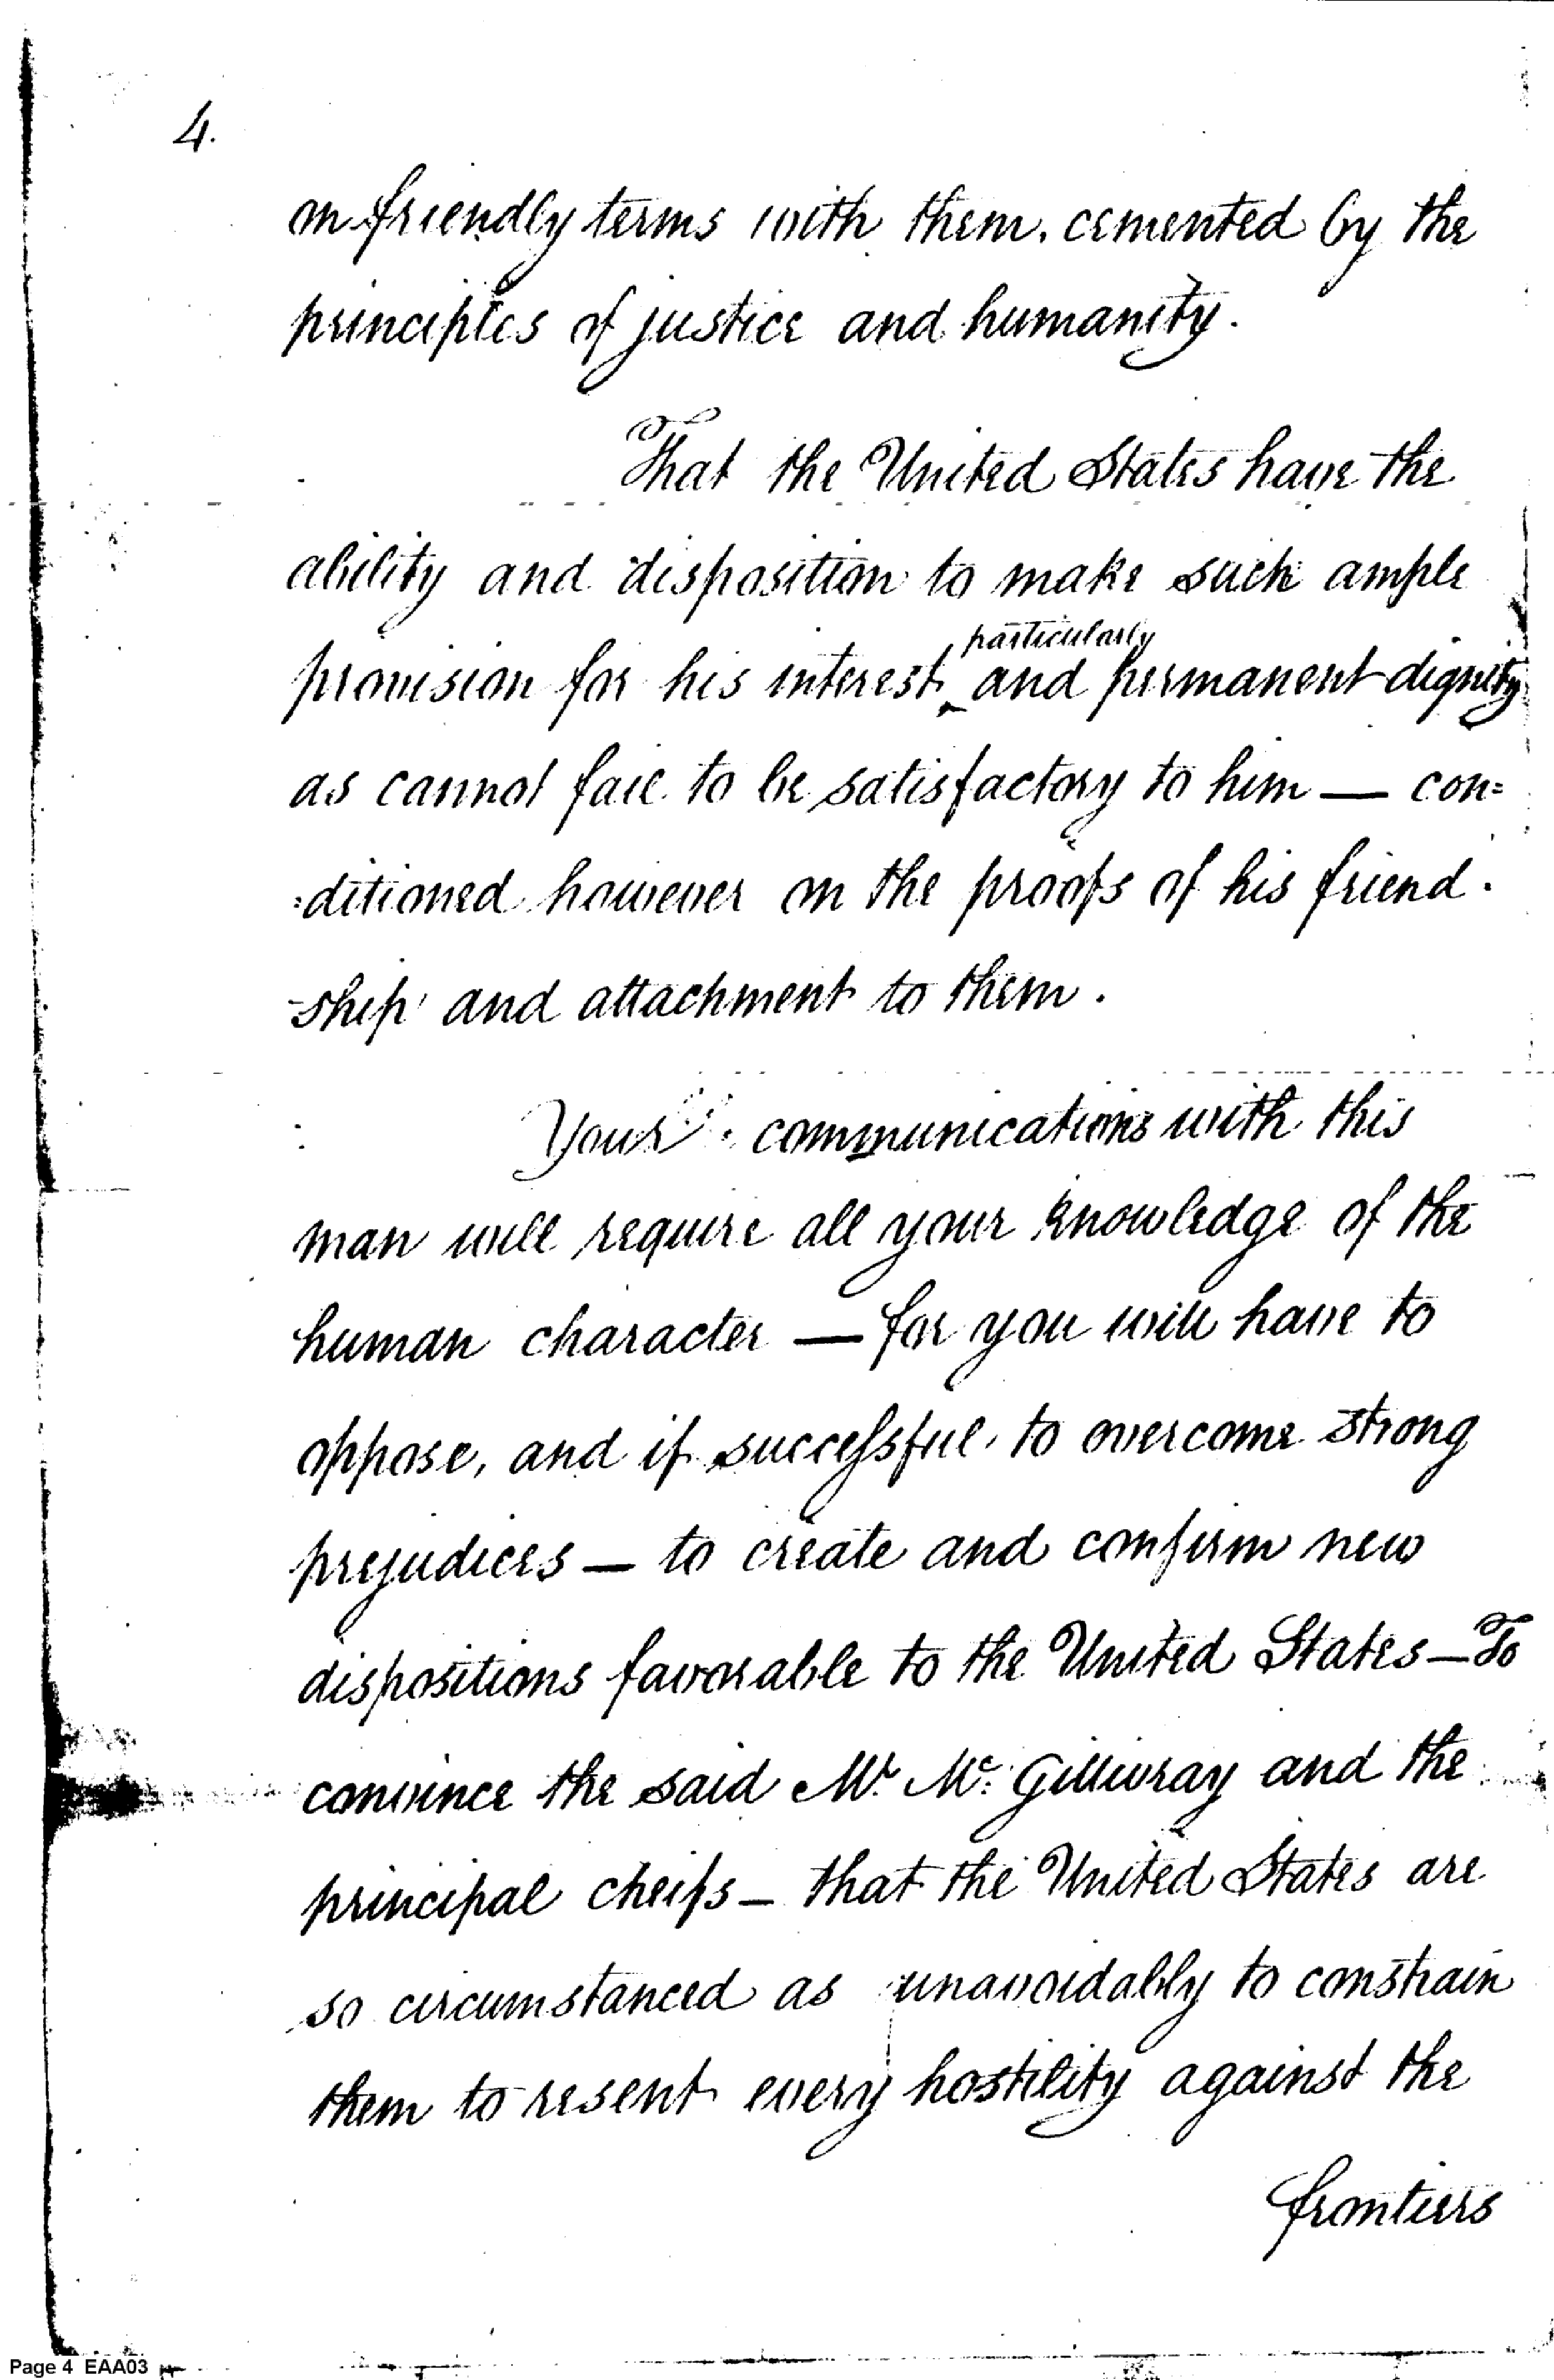 4.
on friendly terms with them, cemented by the
principles of justice and humanity.
That the United States have the
ability and disposition to make such ample
particularly
provision for his interest ‸ and permanent dignity
as cannot fail to be satisfactory to him — con=
=ditioned however on the proofs of his friend-
-ship and attachment to them.
Your communications with this
man will require all your knowledge of the
human character — for you will have to
oppose, and if successful, to overcome strong
prejudices — to create and confirm new
dispositions favorable to the United States — To
convince the said Mr. Mc. Gillivray and the
principal cheifs — that the United States are
so circumstanced as unavoidably to constrain
them to resent every hostility against the
frontiers
Page 4 EAA03